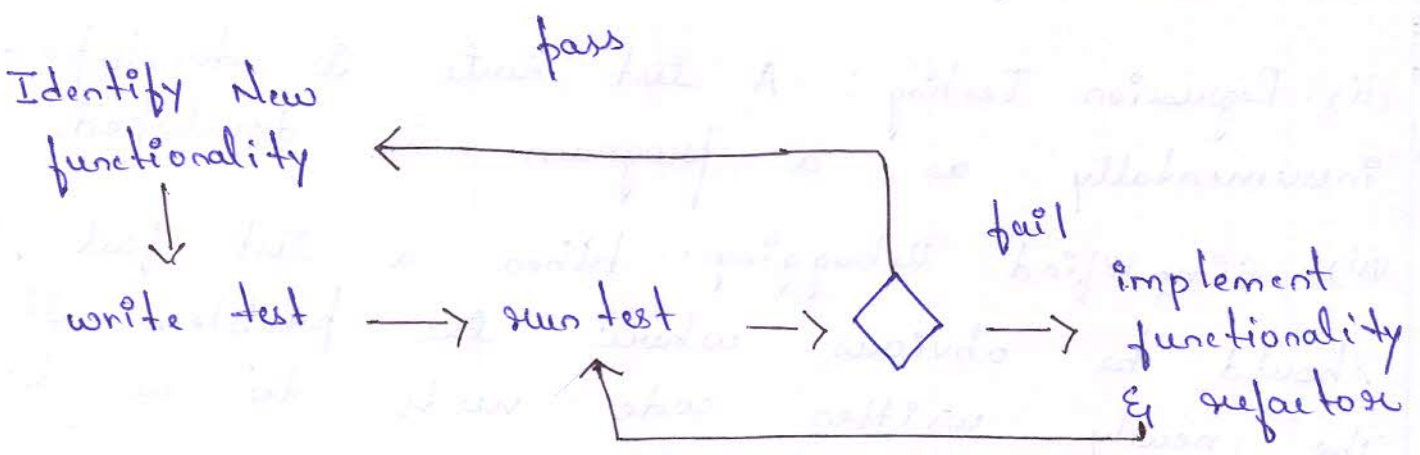 pass
Identify New
functionality
fail
write test
run test
implement
functionality
& refactor